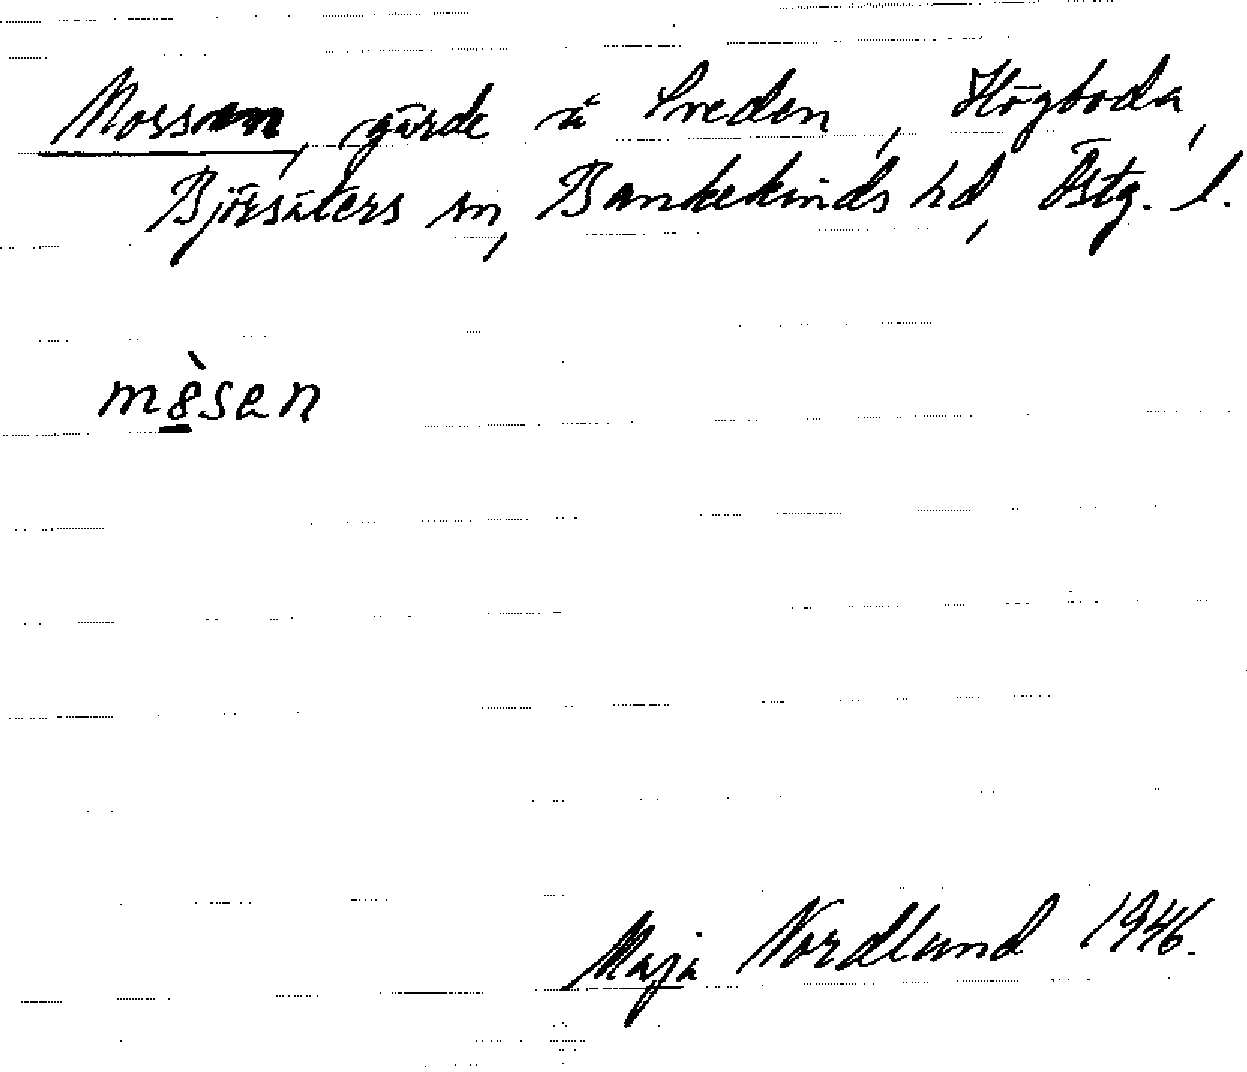 Mossen, gärde å Sveden, Högboda,
Björsäters sn, Bankekinds hd, Östg. l.
m8̀sen
Maja Nordlund 1946.